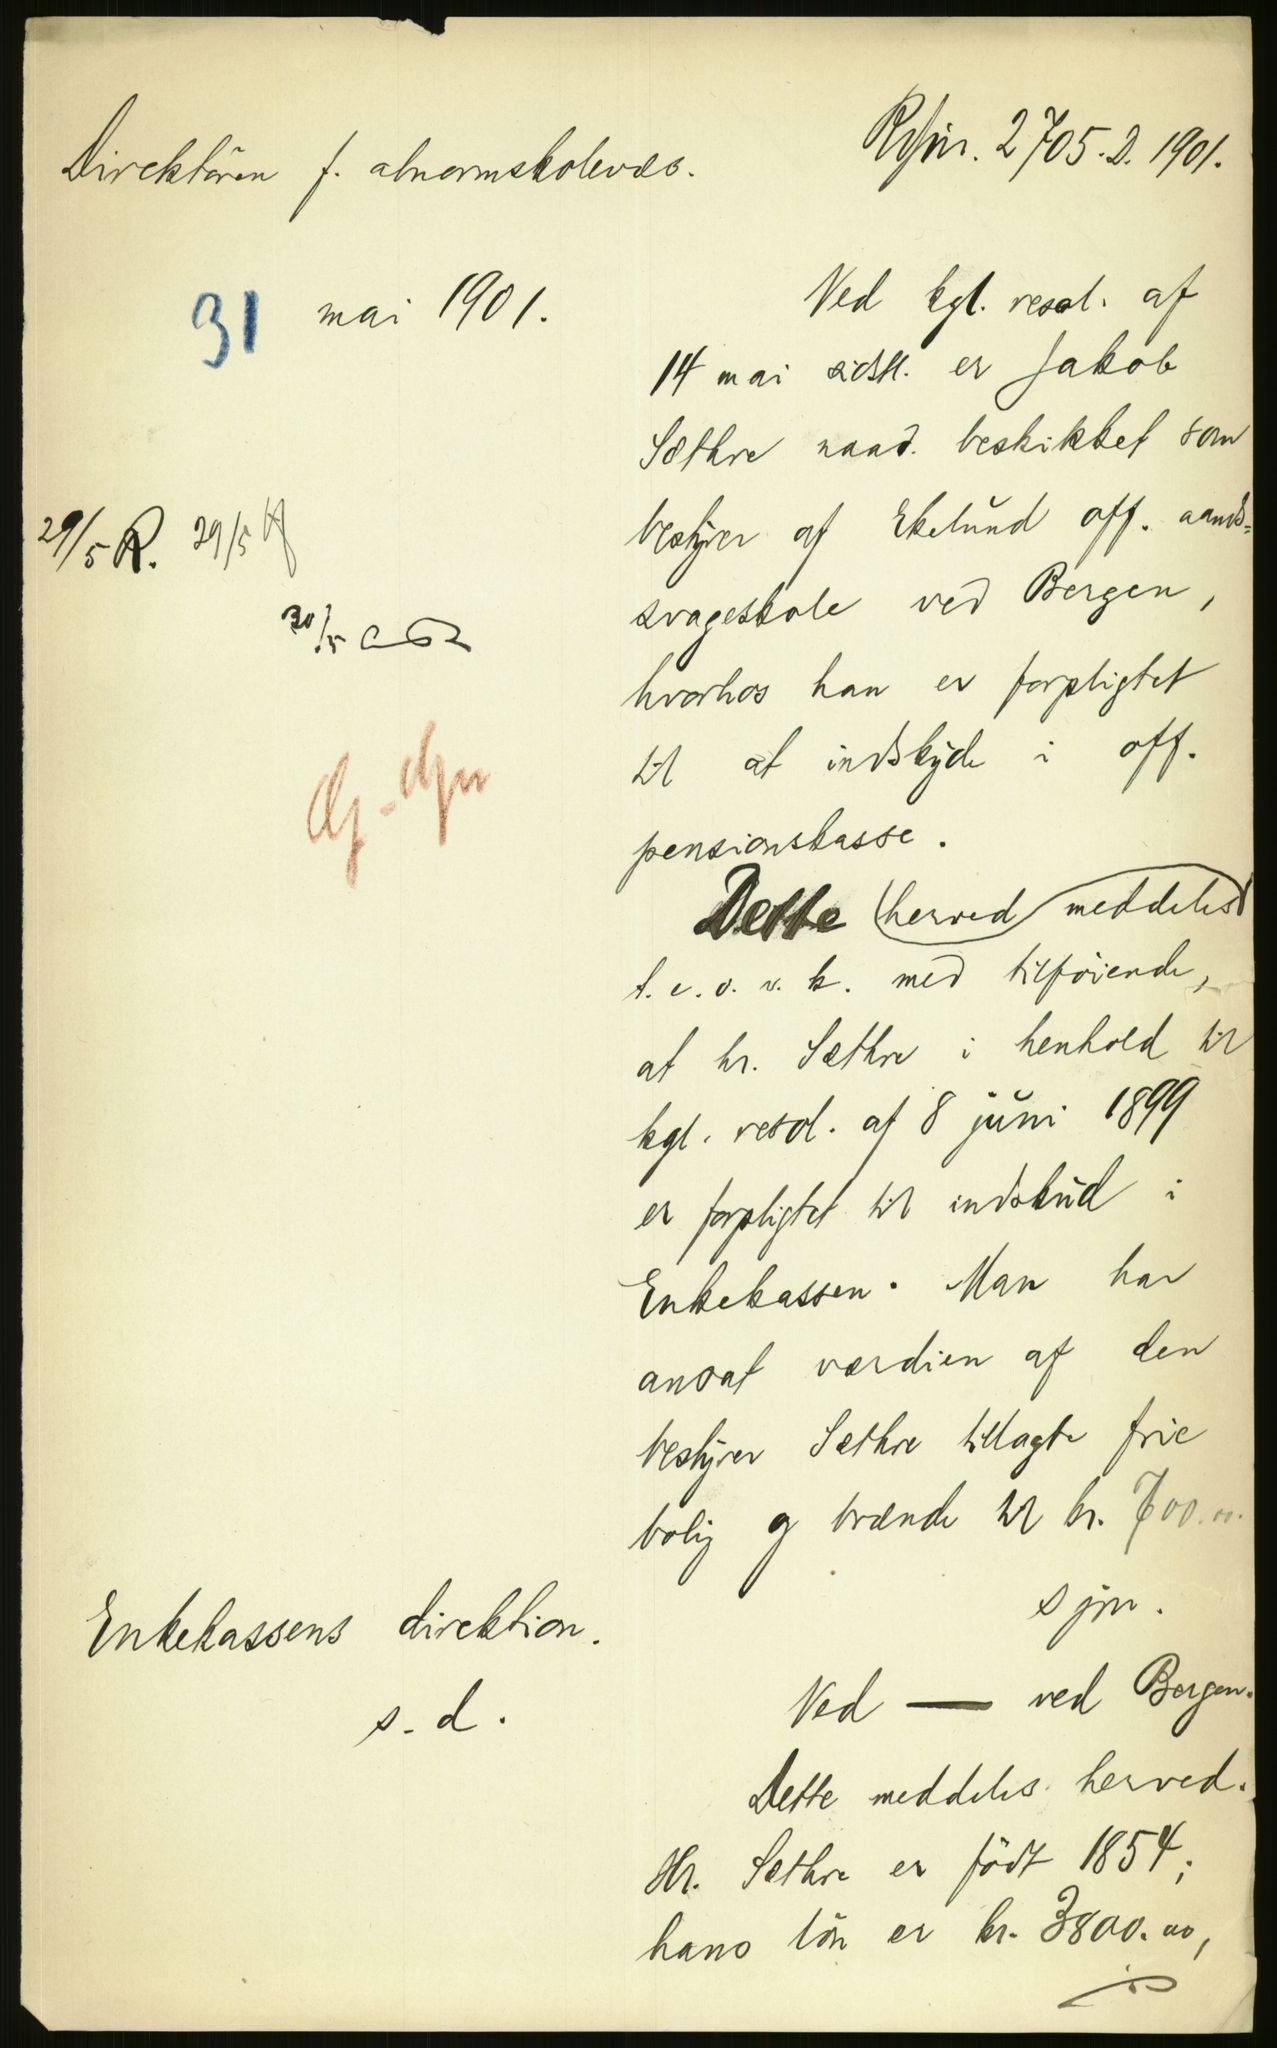 Direktören f. abnormskolevæs.
Refnr. 2705. D. 1901.
31 mai 1901.
Ved kgl. resol. af
14 mai sidstl. er Jakob
Sæthre naad. beskikket som
bestyrer af Ekelund off. aands-
svageskole ved Bergen,
29/5 R. 29/5
30/5
hvorhos han er forpligtet
til at indskyde i off.
pensionskasse.
Dette herved meddeles
t. e. o. v. k. med tilföiende,
at hr. Sæthre i henhold til
kgl. resol. af 8 juni 1899
er forpligtet til indskud i
Enkekassen. Man har
ansat værdien af den
bestyrer Sæthre tillagte frie
bolig og brænde til kr. 700.00.
s jm.
Enkekassens direktion.
s. d.
Ved — ved Bergen.
Dette meddeles herved.
Hr. Sæthre er födt 1854;
hans lön er kr. 3800.00,